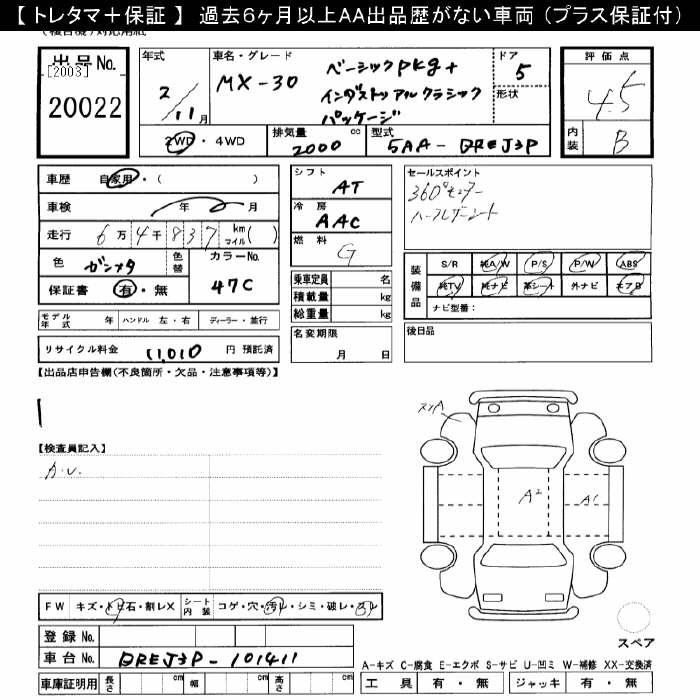 【 トレタマ＋保証 】 過去6ヶ月以上AA出品歴がない車両 (プラス保証付)
出品 No.
[2003]
20022
年式
2/11月
車名・グレード
MX-30
ベーシックpkg+
インダストリアルクラシック
パッケージ
ドア
5
形状
2WD・4WD
排気量 2000 cc
型式 5AA-DREJ3P
評価点
4.5
内装
B
車歴 自家用・( )
車検 年 月
走行 6万4千837 km マイル( )
色 ガンメタ
色替
カラーNo.
47C
保証書 有・無
シフト
AT
冷房
AAC
燃料
G
乗車定員 名
積載量 kg
総重量 kg
セールスポイント
360°モニター
ハーフレザーシート
装備品
S/R 純A/W P/S P/W ABS
純TV 純ナビ 革シート 外ナビ エアB
ナビ型番：
モデル年式 年 ハンドル 左・右 ディーラー・並行
リサイクル料金 11,010 円 預託済
名変期限
月 日
後日品
【出品店申告欄(不良箇所・欠品・注意事項等)】
【検査員記入】
A.U.
A2
A1
FW キズ・トビ石・割レX
シート内装 コゲ・穴・汚レ・シミ・破レ・スレ
登録 No.
車台 No. DREJ3P-101411
車庫証明用 長さ cm 幅 cm 高さ cm
スペア
A-キズ C-腐食 E-エクボ S-サビ U-凹ミ W-補修 XX-交換済
工具 有・無 ジャッキ 有・無